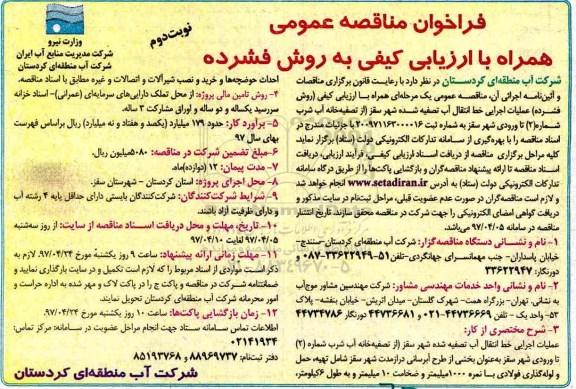 فراخوان مناقصه عمومی
همراه با ارزیابی کیفی به روش فشرده
نوبت دوم
وزارت نیرو
شرکت مدیریت منابع آب ایران
شرکت آب منطقه‌ای کردستان
شرکت آب منطقه‌ای کردستان در نظر دارد با رعایت قانون برگزاری مناقصات
و آئین‌نامه اجرائی آن، مناقصه عمومی یک مرحله‌ای همراه با ارزیابی کیفی (روش
فشرده) عملیات اجرای خط انتقال آب تصفیه شده شهر سقز (از تصفیه‌خانه آب شرب
شماره(۲) تا ورودی شهر سقز به شماره ثبت ۲۰۹۷۱۱۶۳۰۰۰۰۱۶ با جزئیات مندرج در
اسناد مناقصه را با بهره‌گیری از سامانه تدارکات الکترونیکی دولت (ستاد) برگزار نماید
کلیه مراحل برگزاری مناقصه از دریافت اسناد ارزیابی کیفی، فرآیند ارزیابی، دریافت
اسناد مناقصه تا ارائه پیشنهاد مناقصه‌گران و بازگشایی پاکت‌ها را از طریق درگاه سامانه
تدارکات الکترونیکی دولت (ستاد) به آدرس www.setadiran.ir انجام خواهد شد
و لازم است مناقصه‌گران در صورت عدم عضویت قبلی، مراحل ثبت‌نام در سایت مذکور و
دریافت گواهی امضای الکترونیکی را جهت شرکت در مناقصه محقق سازند. تاریخ انتشار
مناقصه در سامانه ۹۷/۰۴/۰۵ می‌باشد.
۱- نام و نشانی دستگاه مناقصه‌گزار: شرکت آب منطقه‌ای کردستان-سنندج-
خیابان پاسداران- جنب مهمانسرای جهانگردی-تلفن ۵۱-۳۳۶۲۲۹۴۹-۰۸۷ و
دورنگار: ۳۳۶۲۲۹۴۷
۲- نام و نشانی واحد خدمات مهندسی مشاور: شرکت مهندسین مشاور موج‌آب
به نشانی: تهران- بزرگراه همت- شهرک گلستان- میدان اتریش- خیابان بنفشه- پلاک
۵۳- واحد یک - تلفن ۴۴۷۳۶۶۶۹-۰۲۱ و ۴۴۷۳۶۶۸۱ دورنگار ۴۴۷۳۴۷۸۶
۳- شرح مختصری از کار:
عملیات اجرایی خط انتقال آب تصفیه شده شهر سقز (از تصفیه‌خانه آب شرب شماره (۲)
تا ورودی شهر سقز به‌عنوان بخشی از طرح آبرسانی درازمدت شهر سقز شامل تهیه، حمل
و لوله‌گذاری فولادی با نمره ۱۰۰۰میلیمتر و ضخامت ۱۰ میلیمتر و به طول ۶کیلومتر،
احداث حوضچه‌ها و خرید و نصب شیرآلات و اتصالات و غیره مطابق با اسناد مناقصه.
۴- روش تامین مالی پروژه: از محل تملک دارایی‌های سرمایه‌ای (عمرانی)- اسناد خزانه
سررسید یکساله و دو ساله و اوراق مشارکت ۳ ساله.
۵- برآورد کار: حدود ۱۷۹ میلیارد (یکصد و هفتاد و نه میلیارد) ریال براساس فهرست
بهای سال ۹۷
۶-مبلغ تضمین شرکت در مناقصه: ۵۰۸۰میلیون ریال.
۷- مدت پیمان: ۱۲ (دوازده)ماه.
۸- محل اجرای پروژه: استان کردستان - شهرستان سقز.
۹- شرایط شرکت‌کنندگان: شرکت‌کنندگان بایستی دارای حداقل پایه ۴ رشته آب
و دارای ظرفیت آزاد باشند.
۱۰- تاریخ، مهلت و محل دریافت اسناد مناقصه از سایت: از روز سه‌شنبه
۹۷/۰۴/۰۵ لغایت ۹۷/۰۴/۱۰
۱۱- مهلت زمانی ارائه پیشنهاد: ساعت ۹ روز یکشنبه مورخ ۹۷/۰۴/۲۴. لازم به
ذکر است مواردی از اسناد مربوط را که لازم است تکمیل و در سایت بارگذاری نمایید و
ضمانتنامه شرکت در مناقصه و پاکت ج را در پاکت لاک و مهر شده به اداره حراست و
امور محرمانه شرکت آب منطقه‌ای کردستان تحویل نمایند.
۱۲- زمان بازگشایی پاکت‌ها: ساعت ۱۰ روز یکشنبه مورخ ۹۷/۰۴/۲۴.
اطلاعات تماس سامانه ستاد جهت انجام مراحل عضویت در سامانه: مرکز تماس:
۰۲۱۴۱۹۳۴
دفتر ثبت‌نام: ۸۸۹۶۹۷۳۷ و ۸۵۱۹۳۷۶۸
شرکت آب منطقه‌ای کردستان